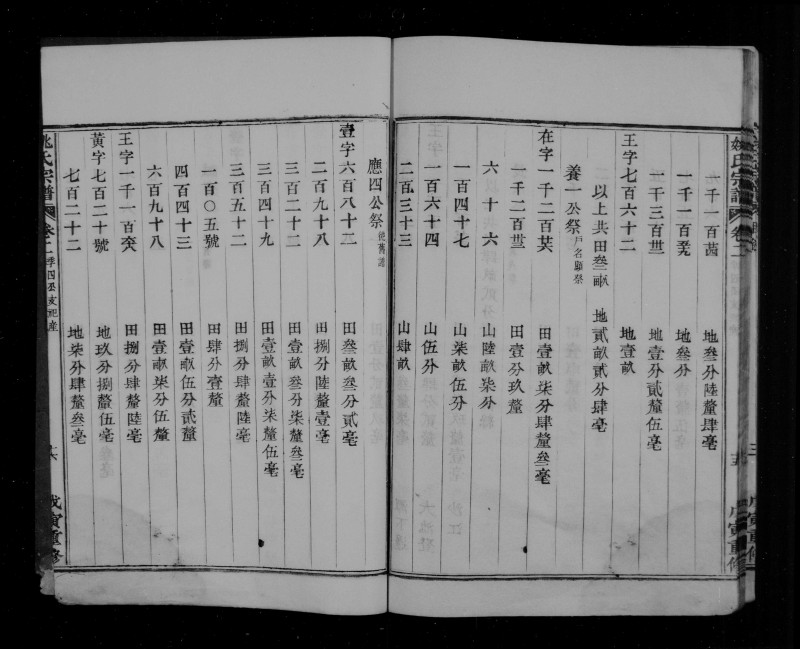 姚氏宗譜 卷二
一千一百茵 地叁分陸釐肆毫
一千一百 地叁分
一千三百卅 地壹分貳釐伍毫
王字七百六十二 地壹畝
以上共田叁畝 地貳畝貳分肆毫
養一公祭 戶名顯祭
在字一千二百 田壹畝柒分肆釐叁毫
一千二百卅 田壹分玖釐
六十六 山陸畝柒分
一百四十七 山柒畝伍分
一百六十四 山伍分
二百三十三 山肆畝
應四公祭 後舊譜
壹字六百八十二 田叁畝叁分貳毫
二百九十八 田捌分陸釐壹毫
三百二十二 田壹畝叁分柒釐叁毫
三百四十九 田壹畝壹分柒釐伍毫
三百五十二 田捌分肆釐陸毫
一百〇五號 田肆分壹釐
四百四十三 田壹畝伍分貳釐
六百九十八 田壹畝柒分伍釐
王字一千一百 田捌分肆釐陸毫
黃字七百二十號 地玖分捌釐伍毫
七百二十二 地柒分肆釐叁毫
姚氏宗譜 卷二 季四丞支祀產 戊寅重修